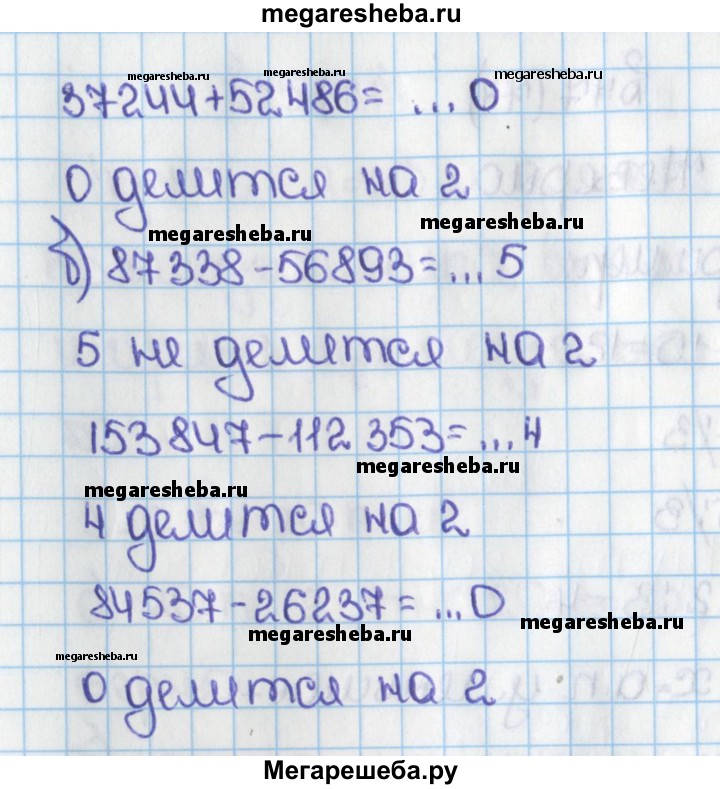 megaresheba.ru
megaresheba.ru megaresheba.ru megaresheba.ru
37244+52486= ...0
0 делится на 2
megaresheba.ru megaresheba.ru
б) 87338-56893=...5
5 не делится на 2
153847-112353=...4
megaresheba.ru
megaresheba.ru
4 делится на 2
84537-26237= ...0
megaresheba.ru megaresheba.ru
megaresheba.ru
0 делится на 2
Мегарешеба.ру